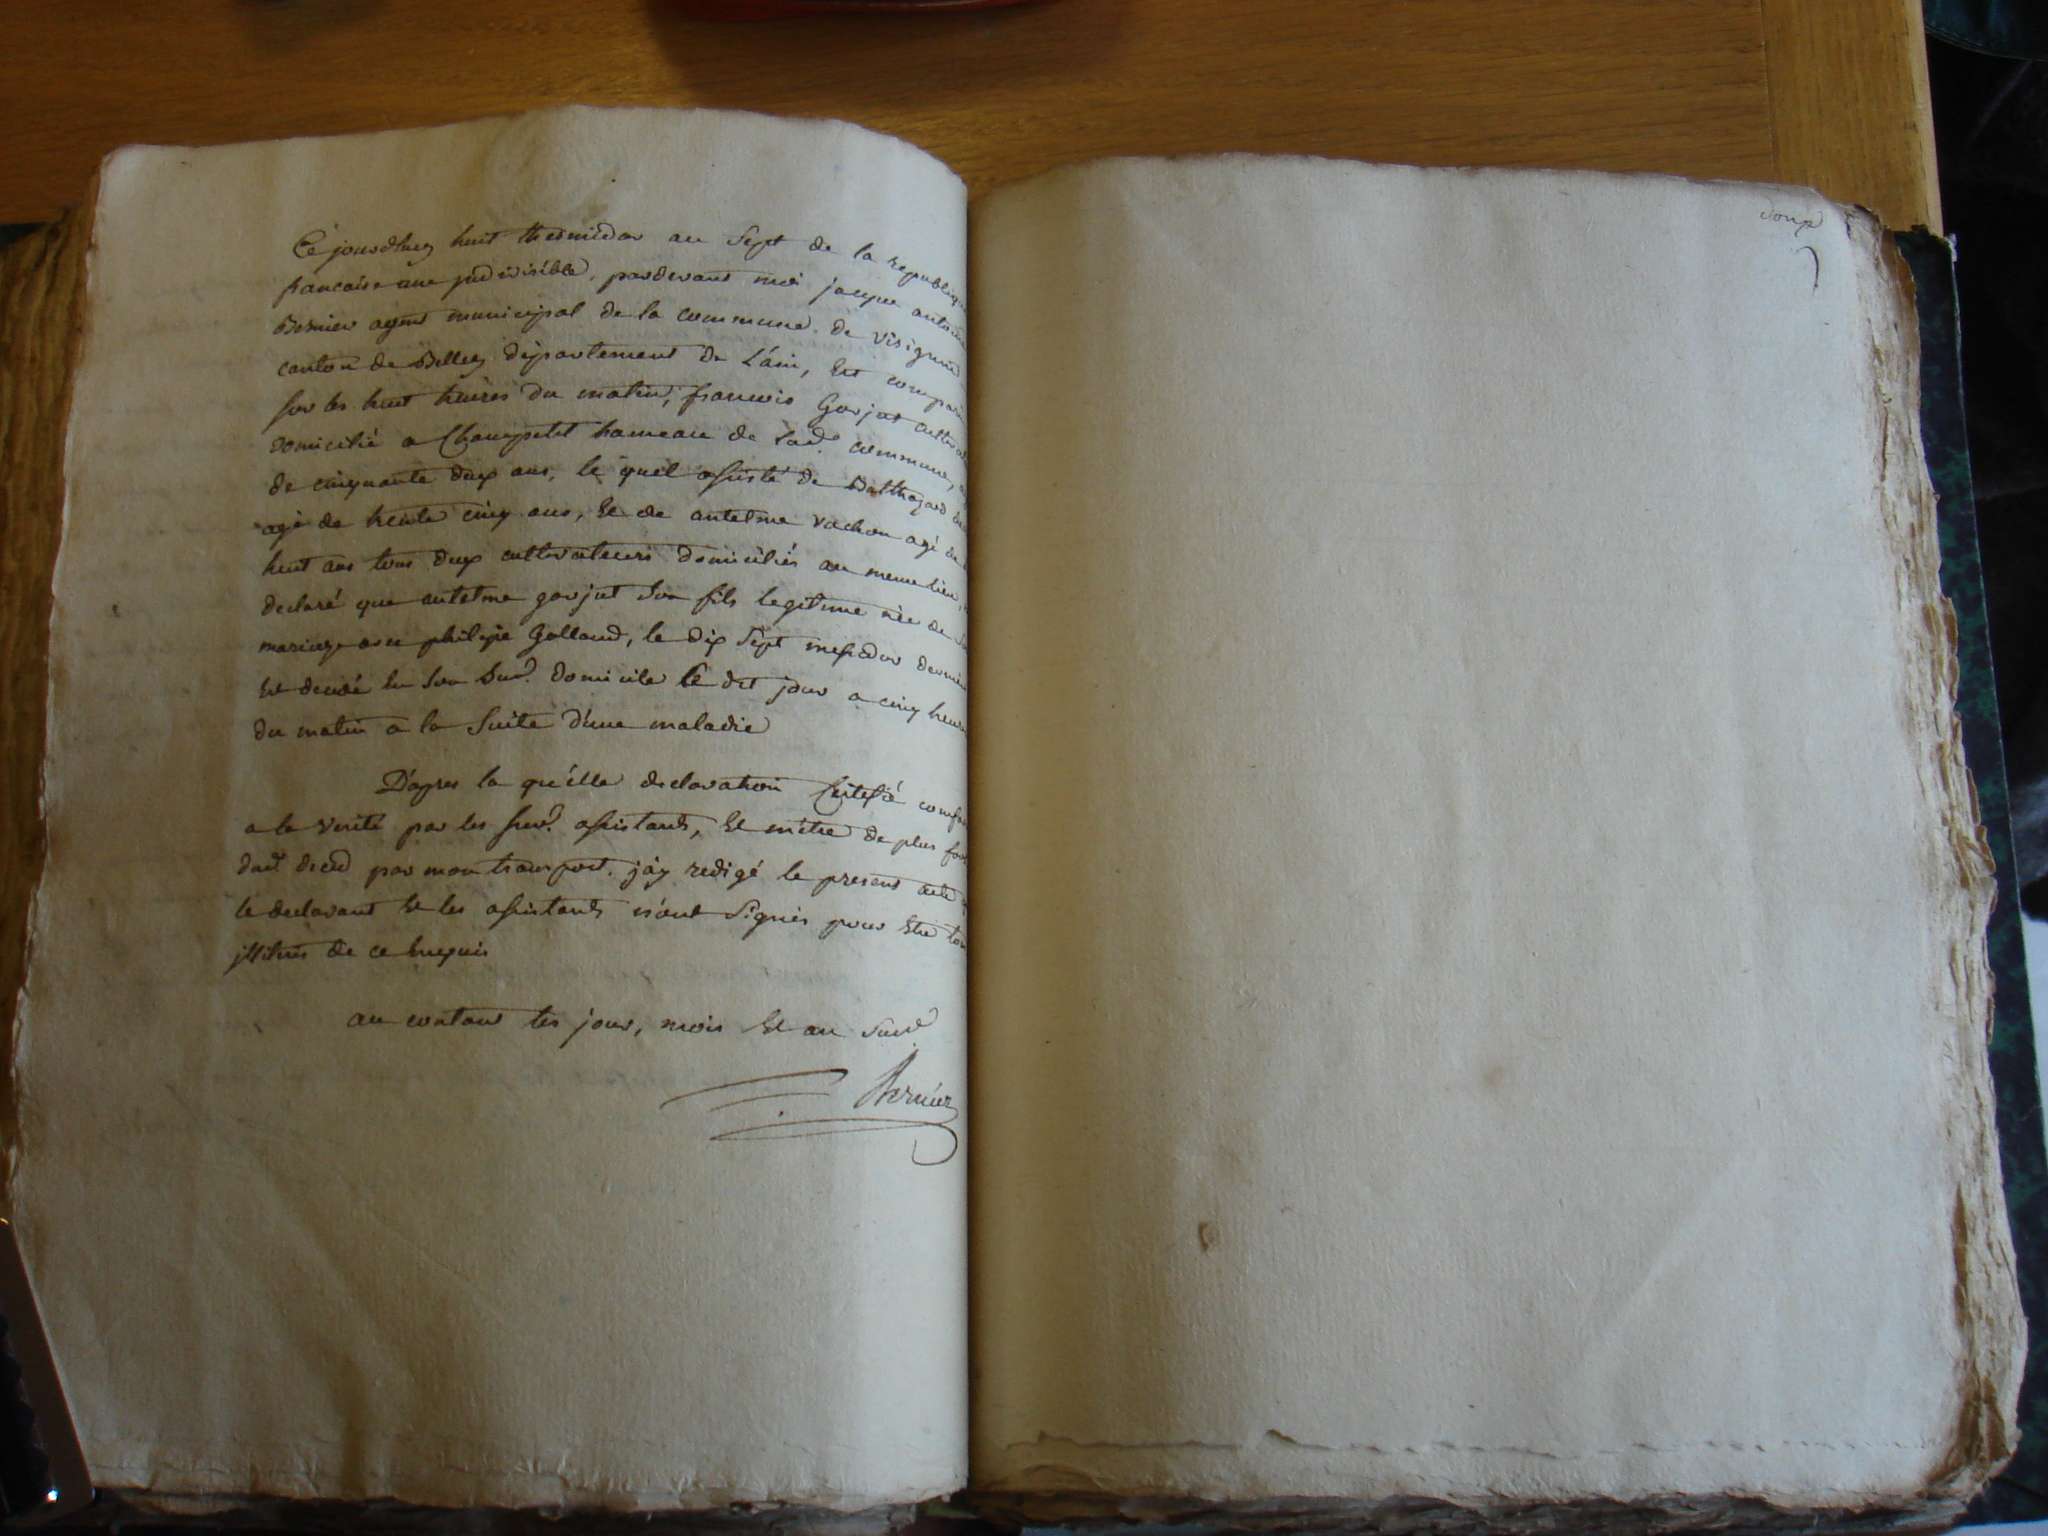 Ce jourdhuy huit thermidor an sept de la republique
francaise une jndivisible, pardevant moi jacque antoine
Bernier agent municipal de la commune de visignieu
canton de Belley departement de L'ain, Est comparu
sur les huit heures du matin, francois Gorjat
domicilié a Champetel hameau de Lad.e commune,
de cinquante deux ans, le quel assisté de Balthazard
agé de trente cinq ans, Et de antelme vachon agé de
huit ans tous deux cultivateurs domiciliés au meme lieu,
declaré que antelme gorjat son fils legitime née de son
mariage avec philipe Galland, le dix sept messidor dernier
Est decedé En son Sud. domicile le dit jour a cinq heures
du matin a la suite d'une maladie
D'apres la qu'elle declaration Certifié
a la verité par les susd. assistants, Et
dud. deces par mon transport, j'ay redigé le present acte
le declarant Et les assistants n'ont signés pour Etre
jllitrés de ce
au contant les jour, mois Et an susd.
Bernier
douze